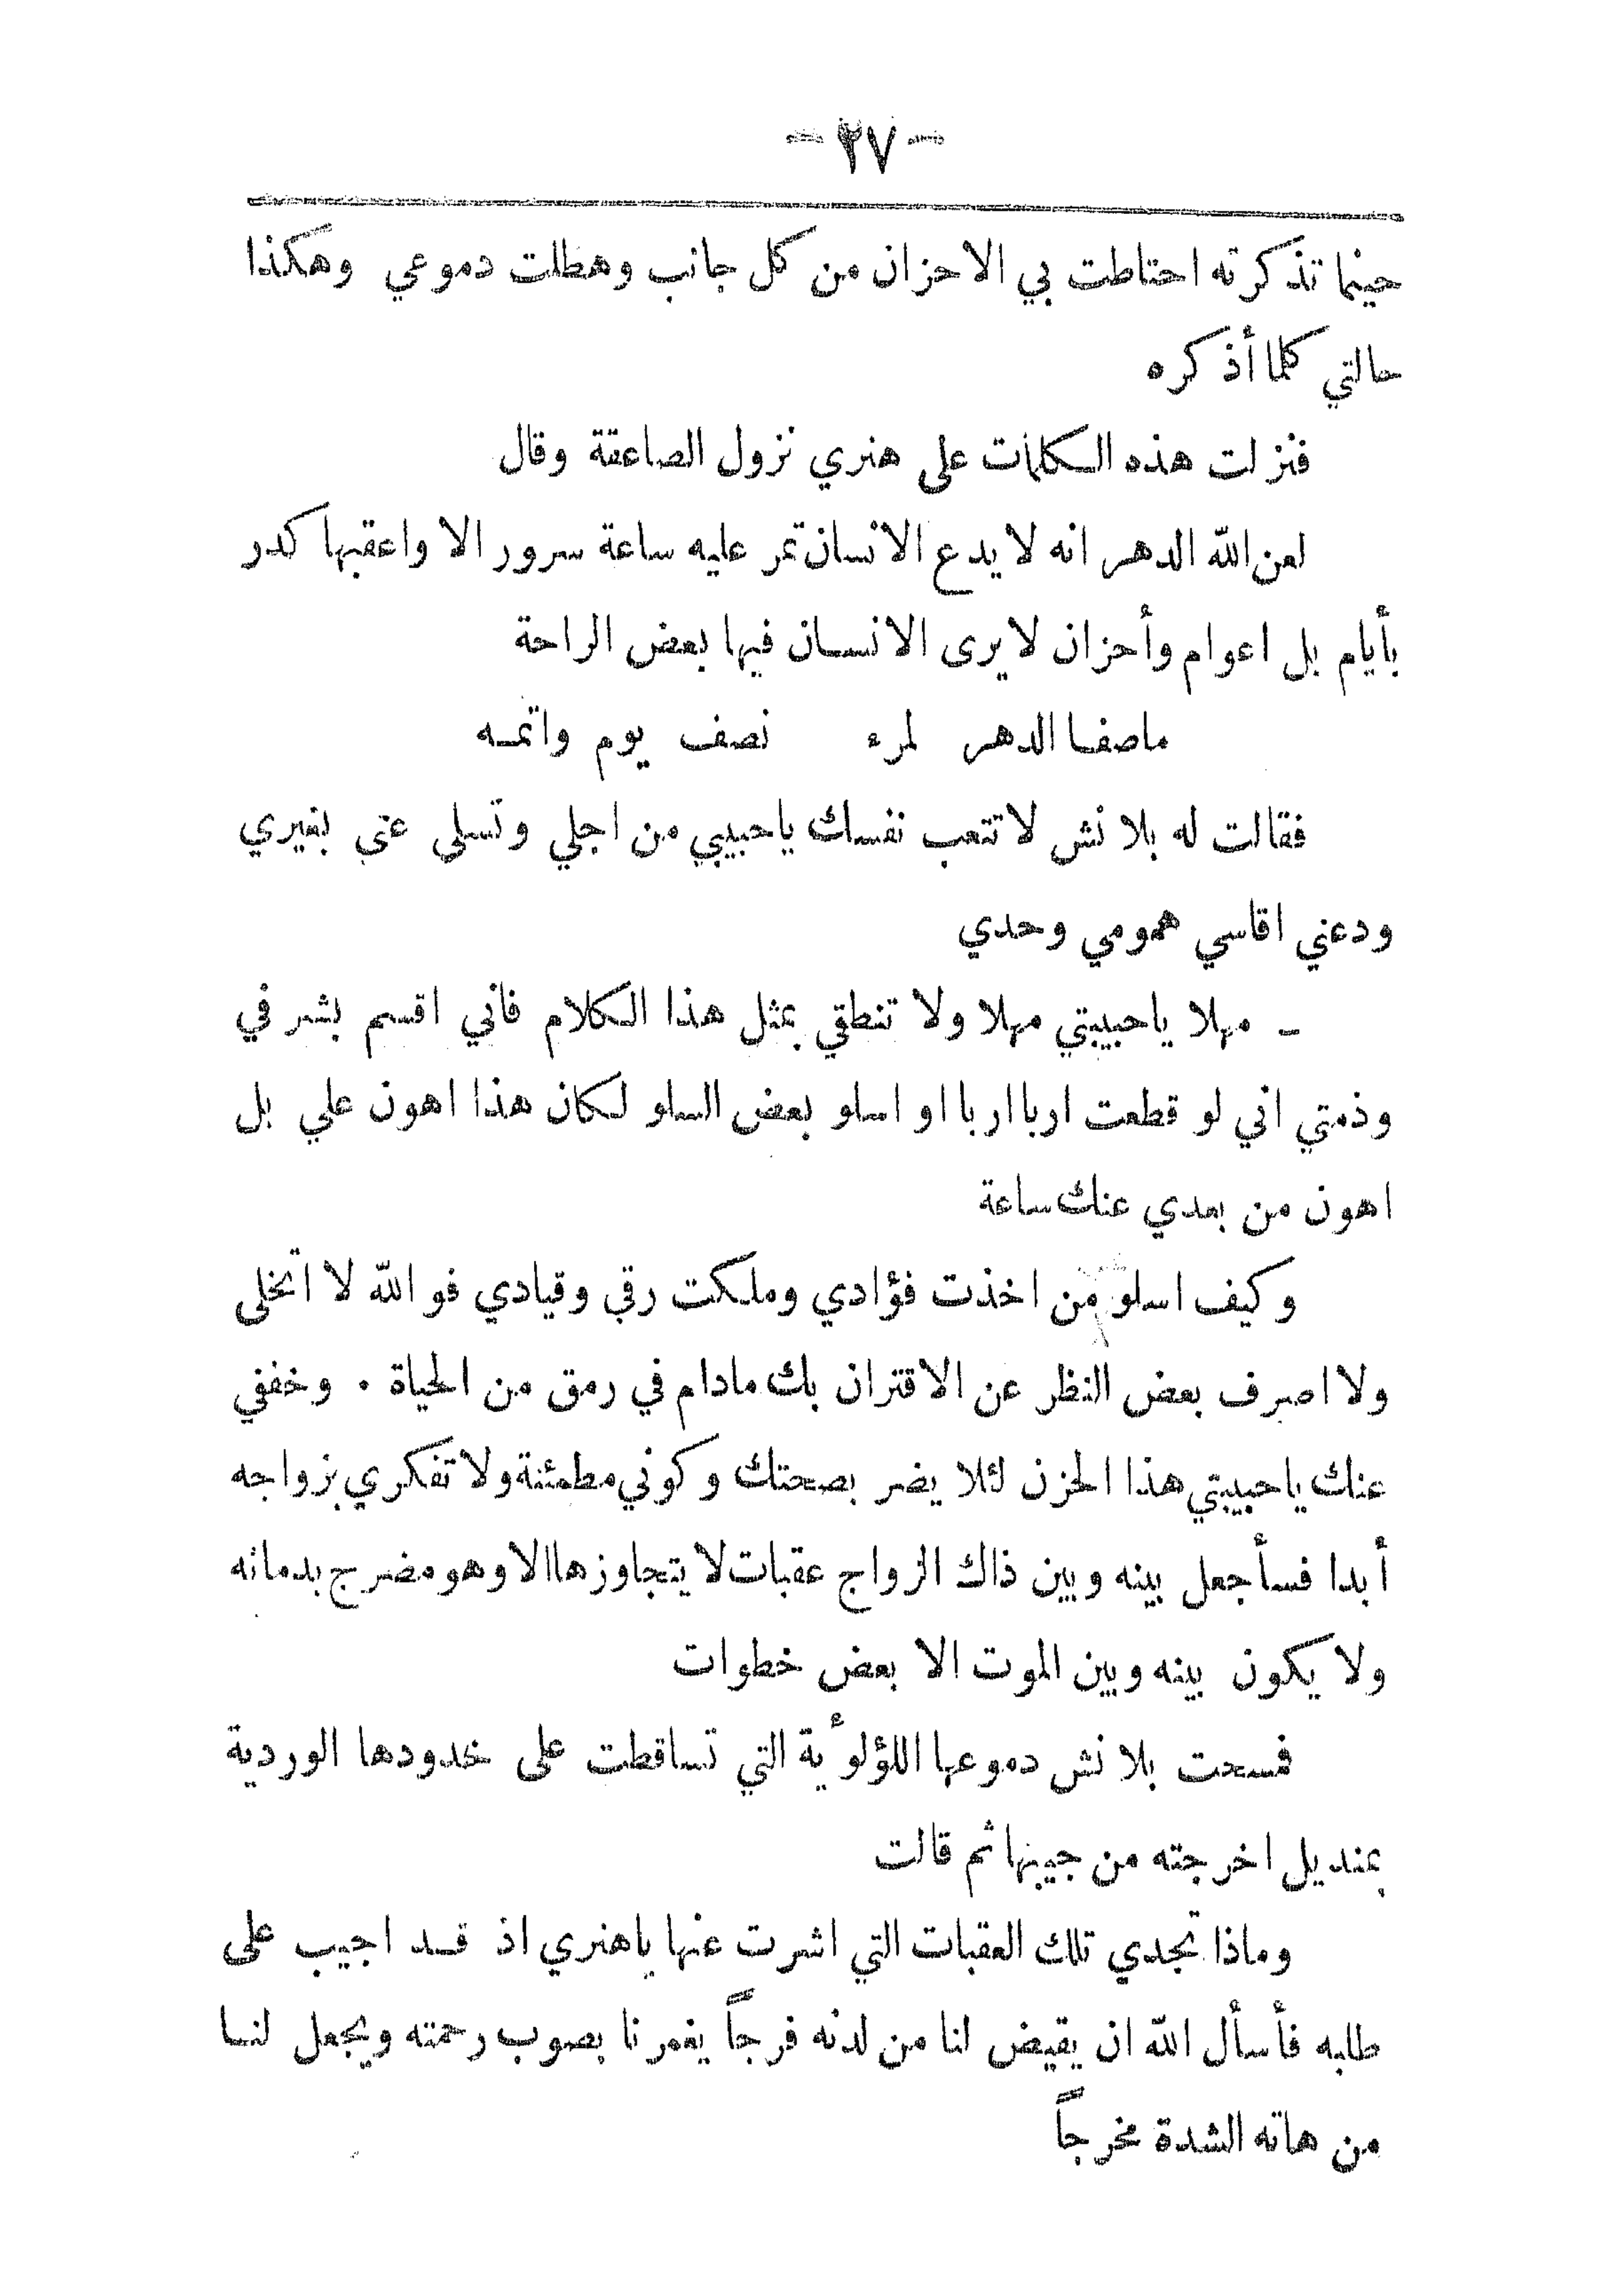 - ٢٧ -
حينما تذكرته احتاطت بي الاحزان من كل جانب وهطلت دموعي وهكذا
حالتي كلما أذكره
فنزلت هذه الكلمات على هنري نزول الصاعقة وقال
لعن الله الدهر انه لا يدع الانسان تمر عليه ساعة سرور الا واعقبها كدر
بأيام بل اعوام وأحزان لا يرى الانسان فيها بعض الراحة
ماصفا الدهر لمرء نصف يوم واتمه
فقالت له بلانش لا تتعب نفسك ياحبيبي من اجلي وتسلى عني بغيري
ودعني اقاسي همومي وحدي
ـ مهلا ياحبيبتي مهلا ولا تنطقي بمثل هذا الكلام فاني اقسم بشرفي
وذمتي اني لو قطعت اربا اربا او اسلو بعض السلو لكان هذا اهون علي بل
اهون من بعدي عنك ساعة
وكيف اسلو من اخذت فؤادي وملكت رقي وقيادي فو الله لا اتخلى
ولا اصرف بعض النظر عن الاقتران بك مادام في رمق من الحياة . وخففي
عنك ياحبيبتي هذا الحزن لئلا يضر بصحتك وكوني مطمئنة ولا تفكري بزواجه
أبدا فسأجعل بينه وبين ذاك الزواج عقبات لا يتجاوزها الا وهو مضرج بدمائه
ولا يكون بينه وبين الموت الا بعض خطوات
فمسحت بلانش دموعها اللؤلؤية التي تساقطت على خدودها الوردية
بمنديل اخرجته من جيبها ثم قالت
وماذا تجدي تلك العقبات التي اشرت عنها ياهنري اذ قد اجيب على
طلبه فأسأل الله ان يقيض لنا من لدنه فرجاً يغمرنا بصوب رحمته ويجعل لنا
من هاته الشدة مخرجاً